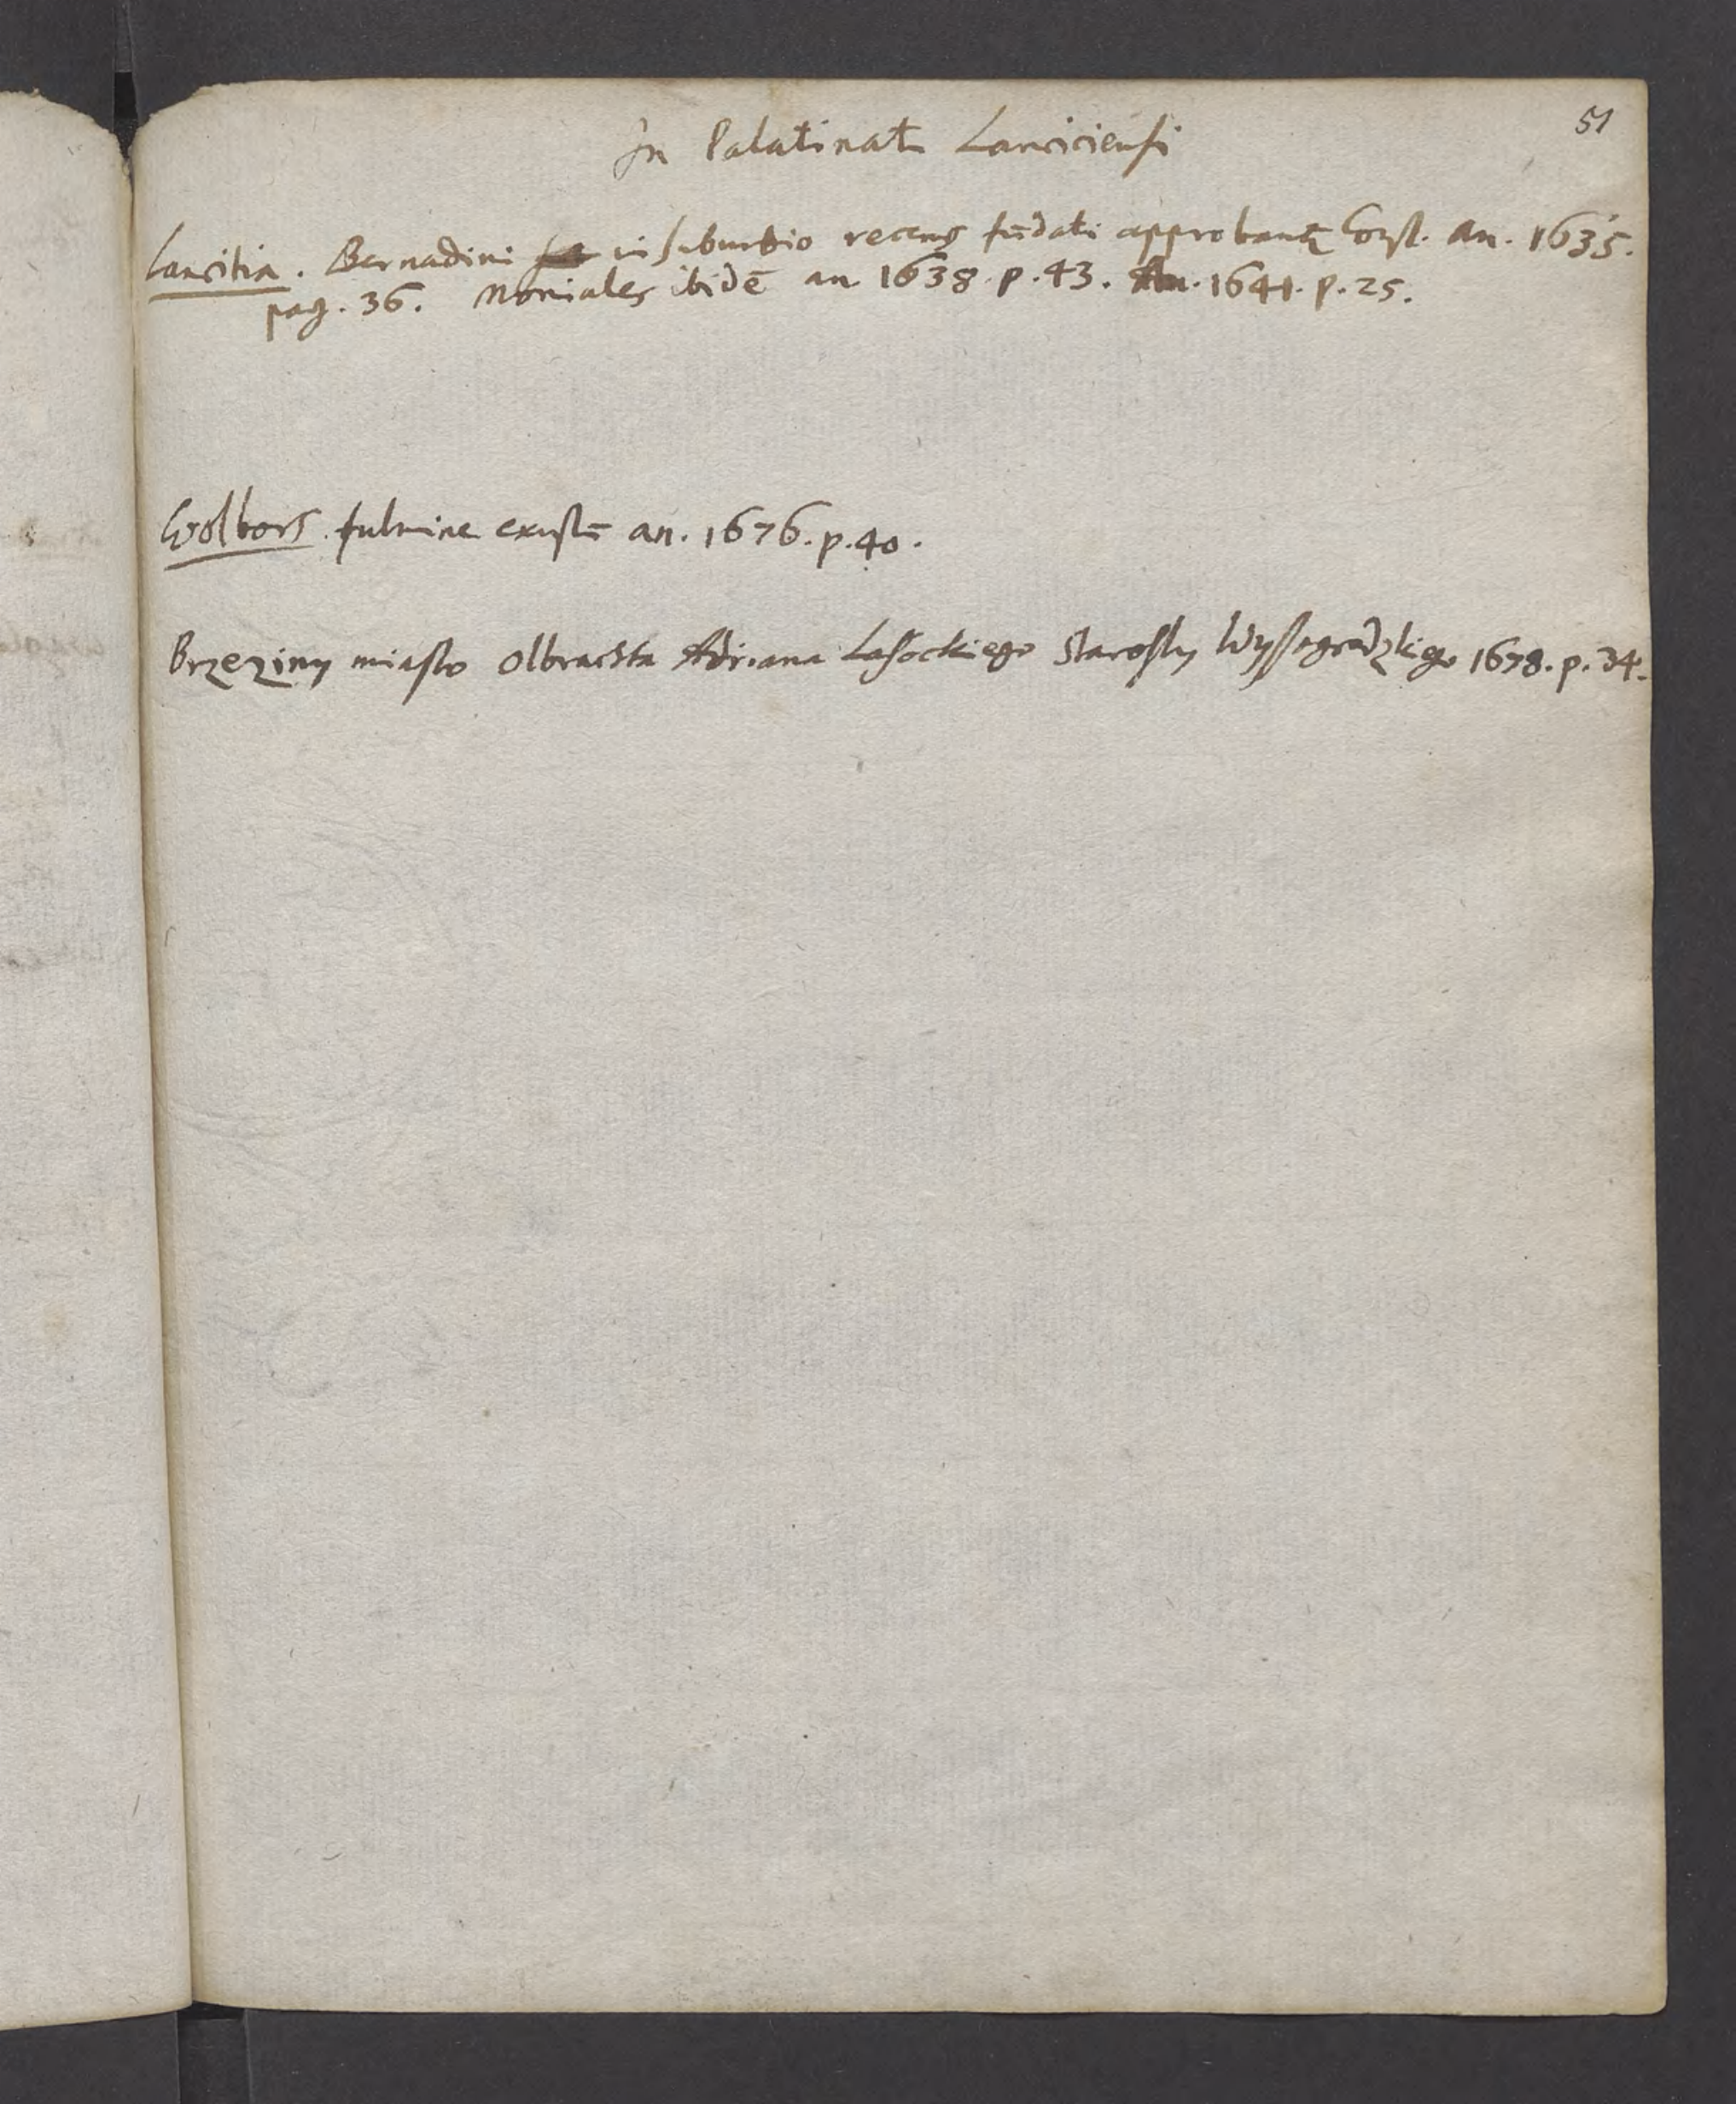 51
In Palatinatu Lanciciensi
Lancitia. Bernadini in suburbio recens fūdati approbantȝ Const. an. 1635.
pag. 36. Moniales ibidē an 1638. p. 43. An. 1641. p. 25.
Wolbors. fulmine exustū an. 1676. p. 40.
Brzeziny miasto Olbrachta Adriana Lasockiego Starosty Wyssogrodzkiego 1678. p. 34.